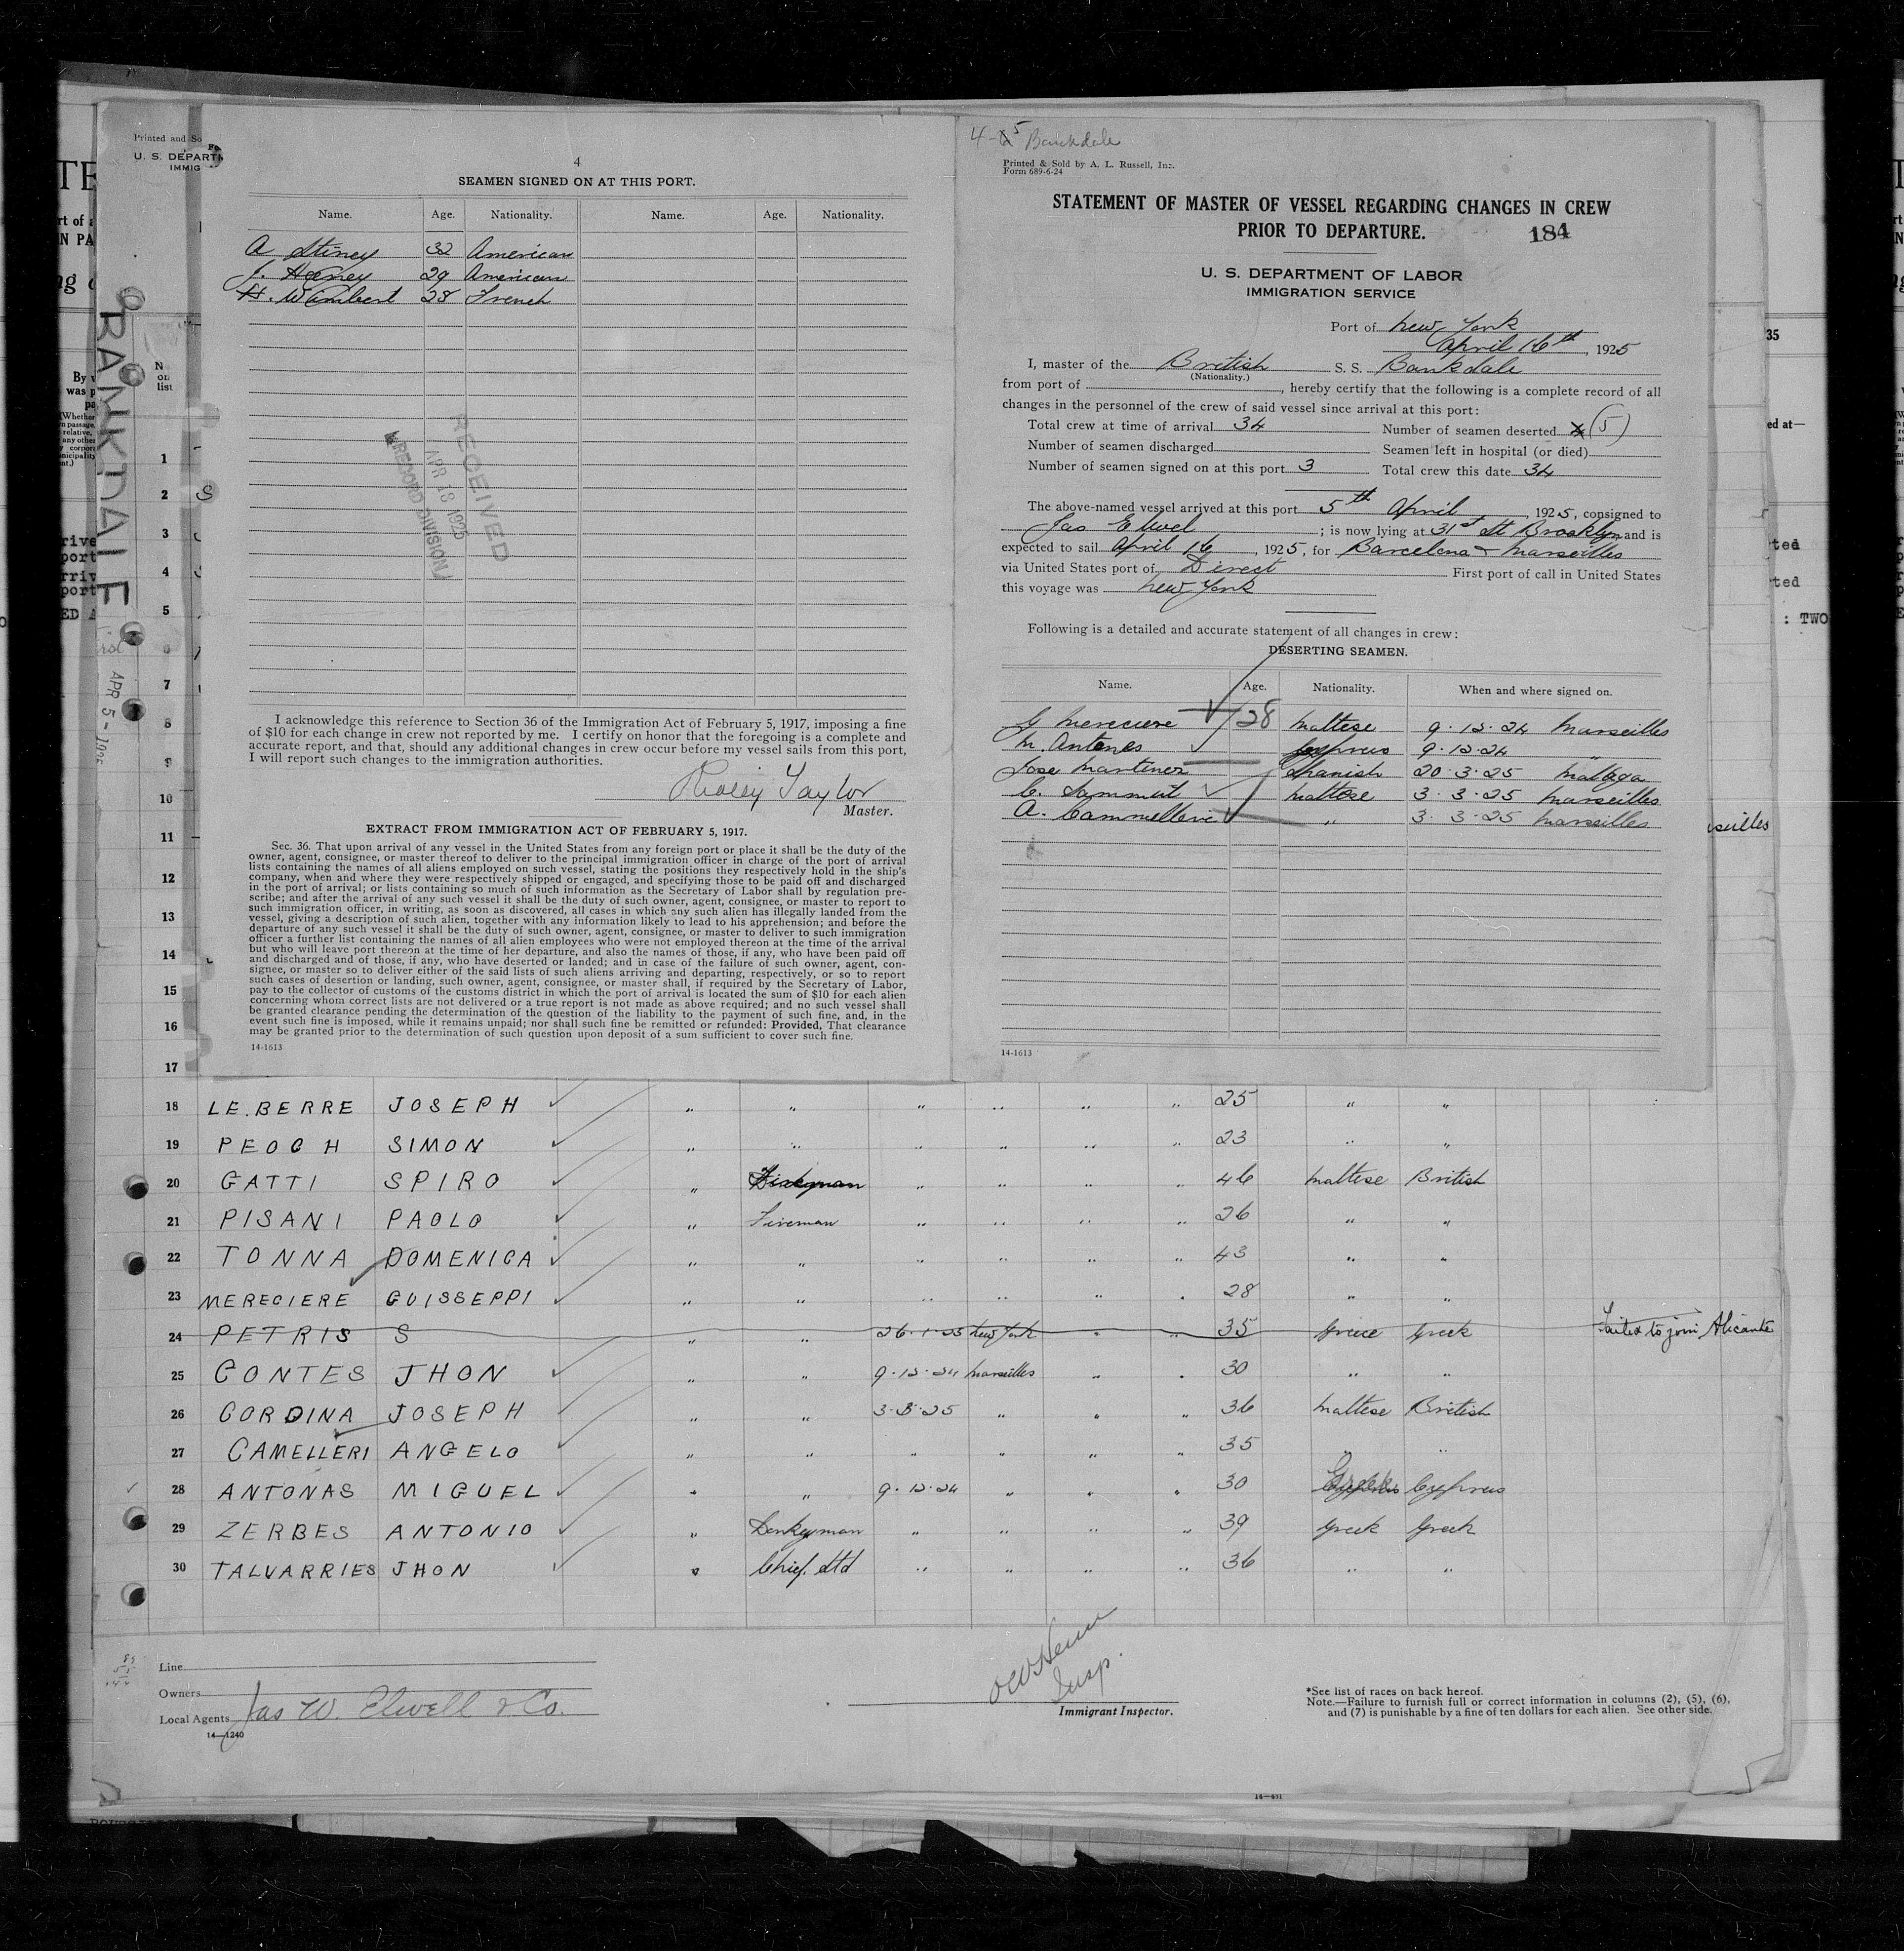 Printed and So
U. S. DEPART
IMMIG
4
SEAMEN SIGNED ON AT THIS PORT.
Name. Age. Nationality. Name. Age. Nationality.
A Stiney 32 American
J. 29 American
H. Wimbert 28 French
RECEIVED
APR 18 1925
RECORD DIVISION
I acknowledge this reference to Section 36 of the Immigration Act of February 5, 1917, imposing a fine
of $10 for each change in crew not reported by me. I certify on honor that the foregoing is a complete and
accurate report, and that, should any additional changes in crew occur before my vessel sails from this port,
I will report such changes to the immigration authorities.
Taylor
Master.
EXTRACT FROM IMMIGRATION ACT OF FEBRUARY 5, 1917.
Sec. 36. That upon arrival of any vessel in the United States from any foreign port or place it shall be the duty of the
owner, agent, consignee, or master thereof to deliver to the principal immigration officer in charge of the port of arrival
lists containing the names of all aliens employed on such vessel, stating the positions they respectively hold in the ship's
company, when and where they were respectively shipped or engaged, and specifying those to be paid off and discharged
in the port of arrival; or lists containing so much of such information as the Secretary of Labor shall by regulation pre-
scribe; and after the arrival of any such vessel it shall be the duty of such owner, agent, consignee, or master to report to
such immigration officer, in writing, as soon as discovered, all cases in which any such alien has illegally landed from the
vessel, giving a description of such alien, together with any information likely to lead to his apprehension; and before the
departure of any such vessel it shall be the duty of such owner, agent, consignee, or master to deliver to such immigration
officer a further list containing the names of all alien employees who were not employed thereon at the time of the arrival
but who will leave port thereon at the time of her departure, and also the names of those, if any, who have been paid off
and discharged and of those, if any, who have deserted or landed; and in case of the failure of such owner, agent, con-
signee, or master so to deliver either of the said lists of such aliens arriving and departing, respectively, or so to report
such cases of desertion or landing, such owner, agent, consignee, or master shall, if required by the Secretary of Labor,
pay to the collector of customs of the customs district in which the port of arrival is located the sum of $10 for each alien
concerning whom correct lists are not delivered or a true report is not made as above required; and no such vessel shall
be granted clearance pending the determination of the question of the liability to the payment of such fine, and, in the
event such fine is imposed, while it remains unpaid; nor shall such fine be remitted or refunded: Provided, That clearance
may be granted prior to the determination of such question upon deposit of a sum sufficient to cover such fine.
14-1613
4-5 Bankdale
Printed & Sold by A. L. Russell, Inc.
Form 689-6-24
STATEMENT OF MASTER OF VESSEL REGARDING CHANGES IN CREW
PRIOR TO DEPARTURE.
184
U. S. DEPARTMENT OF LABOR
IMMIGRATION SERVICE
Port of New York
April 16th, 1925
I, master of the British S. S. Bankdale
(Nationality.)
from port of , hereby certify that the following is a complete record of all
changes in the personnel of the crew of said vessel since arrival at this port:
Total crew at time of arrival 34 Number of seamen deserted (5)
Number of seamen discharged Seamen left in hospital (or died)
Number of seamen signed on at this port 3 Total crew this date 34
The above-named vessel arrived at this port 5th April, 1925, consigned to
Jas Elwel; is now lying at 31st St Brooklyn and is
expected to sail April 16, 1925, for Barcelona & Marseilles
via United States port of Direct First port of call in United States
this voyage was New York
Following is a detailed and accurate statement of all changes in crew:
DESERTING SEAMEN.
Name. Age. Nationality. When and where signed on.
G Mereciere 28 Maltese 9.12.24 Marseilles
M. Antones Cyprus 9.12.24 "
Jose Martenez Spanish 20.3.25 Mallaga
C. Sammut Maltese 3.3.25 Marseilles
A. Cammelleri " 3.3.25 Marseilles
14-1613
BANKDALE
APR 5 - 1925
No. on list
1
2 S
3
4
5
6
7
8
9
10
11
12
13
14
15
16
17
18 LE.BERRE JOSEPH " " " " " " 25 " "
19 PEOCH SIMON " " " " " " 23 " "
20 GATTI SPIRO " " " " " 46 Maltese British
21 PISANI PAOLO " Fireman " " " " 26 " "
22 TONNA DOMENICA " " " " " " 43 " "
23 MERECIERE GUISSEPPI " " " " " " 28 " "
24 PETRIS S " " 26.1.25 New York " " 35 Greece Greek Failed to join Alicante
25 CONTES JHON " " 9.12.24 Marseilles " " 30 " "
26 CORDINA JOSEPH " " 3.3.25 " " " 36 Maltese British
27 CAMELLERI ANGELO " " " " " " 35 " "
28 ANTONAS MIGUEL " " 9.12.24 " " " 30 Greek Cyprus
29 ZERBES ANTONIO " Donkeyman " " " " 39 Greek Greek
30 TALVARRIES JHON " Chief. Std " " " " 36 " "
Line
Owners
Local Agents Jas W. Elwell & Co.
14-1240
Insp.
Immigrant Inspector.
*See list of races on back hereof.
Note.—Failure to furnish full or correct information in columns (2), (5), (6),
and (7) is punishable by a fine of ten dollars for each alien. See other side.
35
ed at—
seilles
: TWO